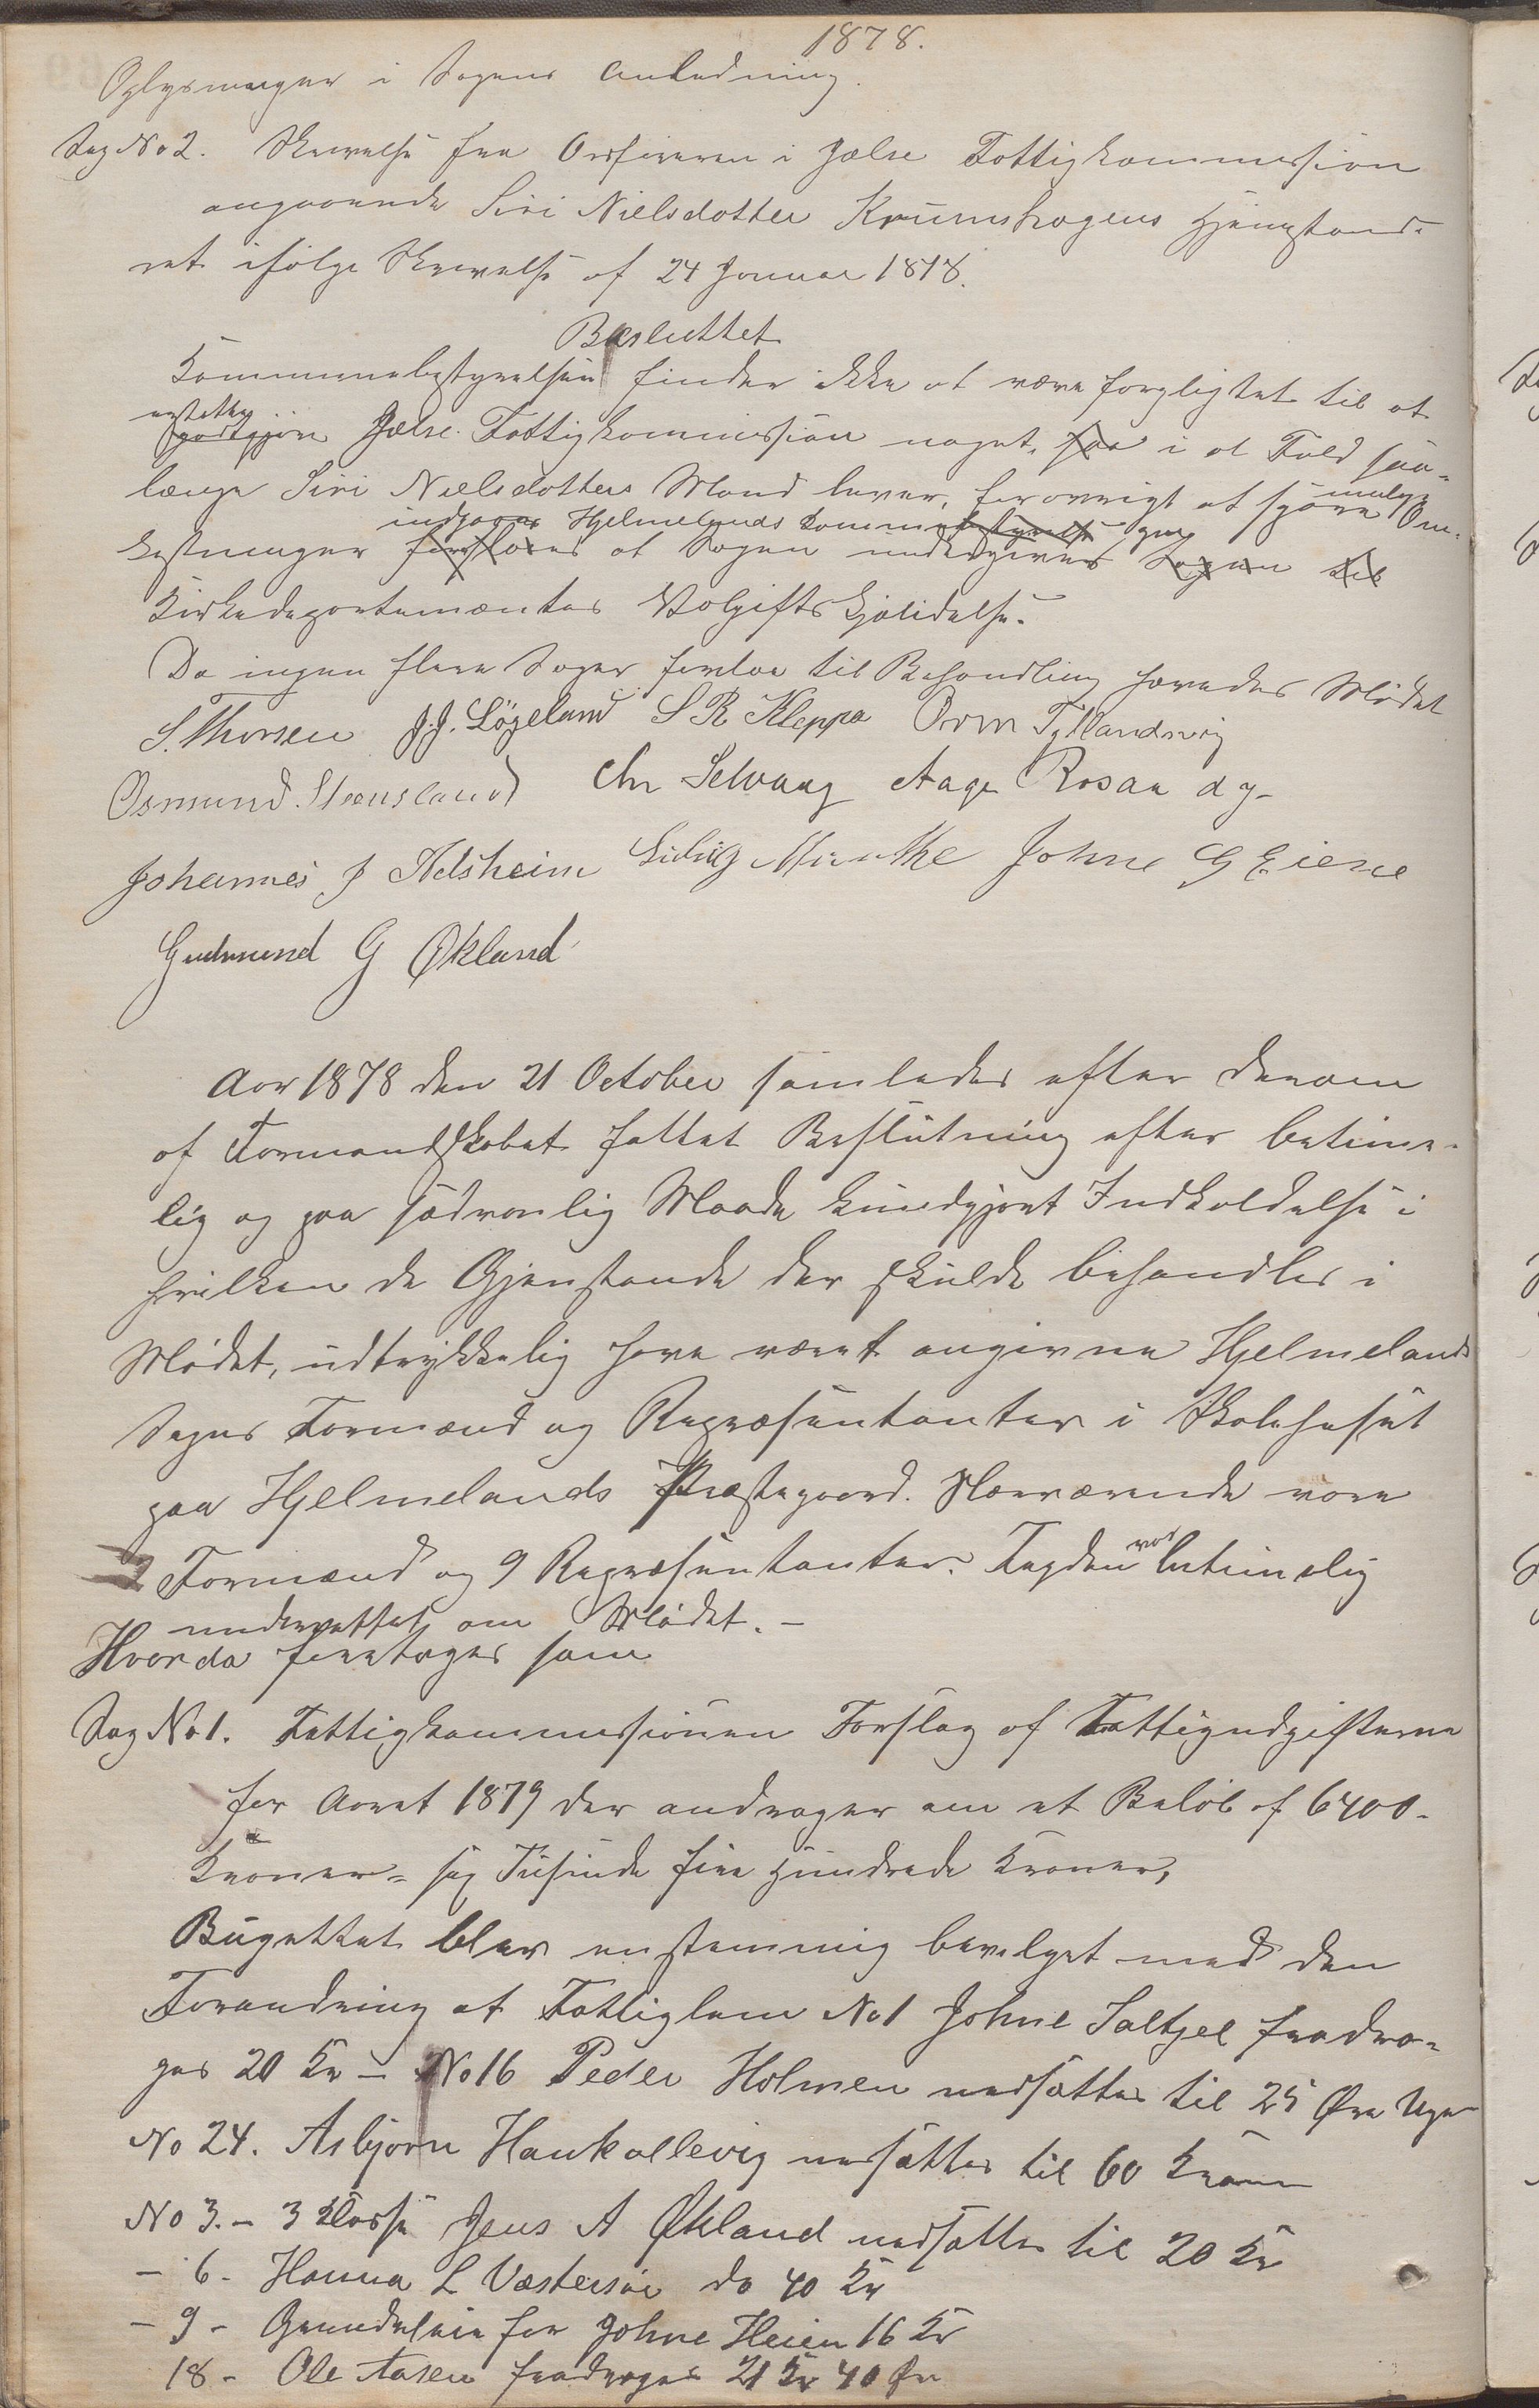 1878.
Oplysninger i Sagens Anledning.
Sag No 2. Skrivelse fra Ordføreren i Jælse Fattigkommission
angaaende Siri Nielsdotter Krumshagens Hjemstavns-
ret ifølge Skrivelse af 24 Januar 1878.
Besluttet
Kommunebestyrelsen finder ikke at være forpligtet til at
erstatte
godtgjøre Jælse Fattigkommission noget, saa i et Fald saa-
længe Siri Nielsdotters Mand lever, forøvrigt at spare mulige Om-
indgaar Hjelmelands Kommunebestyrelse paa
kostninger foreslaaes at Sagen undergives Sagen til
Kirkedepartementes Volgiftskjendelse.
Da ingen flere Sager forelaa til Behandling hævedes Mødet
S. Thorsen J. J. Løgeland S R Kleppa Orm Tytlandsvig
Osmund Steensland Chr Selvaag Aage Rosaa dy-
Johannes J Helsheim Ludvig Munthe Johne G Eiene
Gudmund G Økland
Aar 1878 den 21 October samledes efter derom
af Formandskabet fattet Beslutning efter betime-
lig og paa sædvanlig Maade kundgjort Indkaldelse i
hvilken de Gjenstande der skulde behandles i
Mødet, udtrykkelig have været angivne Hjelmelands
Sogns Formænd og Repræsentanter i Skolehuset
paa Hjelmelands Præstegaard. Nærværende vare
2 Formænd og 9 Repræsentanter. Fogden var betimelig
underrettet om Mødet. –
Hvorda foretoges som
Sag No 1. Fattigkommissionen Forslag af Fattigudgifterne
for Aaret 1879 der andrager om et Beløb af 6400-
Kroner = sex Tusinde fire Hundrede Kroner,
Bugettet blev enstemmig bevilget med den
Forandring at Fattiglem No 1 Johne Saltjel fradra-
ges 20 Kr – No 16 Peder Holmen nedsættes til 25 Øre Uge-
No 24. Asbjørn Haukallevig nedsættes til 60 Kroner
No 3. – 3 Klasse Jens A Økland nedsættes til 20 Kr
– 6 – Hanna L Væstersøe do 40 Kr
– 9 – Grundeleie for Johne Heien 16 Kr
18 – Ole Aasen fradrages 21 Kr 40 Øre